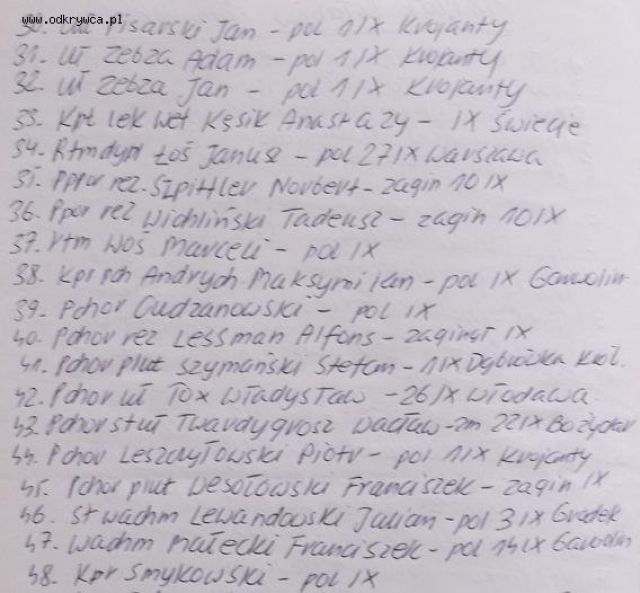 www.odkrywca.pl
30. Uł Pisarski Jan - pol 1/IX Krojanty
31. Uł Zebza Adam - pol 1/IX Krojanty
32. Uł Zebza Jan - pol 1/IX Krojanty
33. Kpt lek wet Kęsik Anastazy - IX Świecie
34. Rtm dypl Łoś Janusz - pol 27 IX Warszawa
35. Ppor rez. Szpittler Norbert - zagin 10 IX
36. Ppor rez Wichliński Tadeusz - zagin 10 IX
37. rtm Woś Marceli - pol IX
38. Kpr pch Andrych Maksymilian - pol IX Garwolin
39. Pchor Cudzanowski - pol IX
40. Pchor rez Lessman Alfons - zaginął IX
41. Pchor plut Szymański Stefan - 1 IX Dąbrówka Król.
42. Pchor uł Tox Władysław - 26 IX Włodawa
43. Pchor st uł Twardygrosz Wacław - zm 22 IX
44. Pchor Leszczyłowski Piotr - pol 1 IX Krojanty
45. Pchor plut Wesołowski Franciszek - zagin IX
46. St wachm Lewandowski Julian - pol 3 IX Gródek
47. Wachm Małecki Franciszek - pol 14 IX Garwolin
48. Kpr Smykowski - pol IX